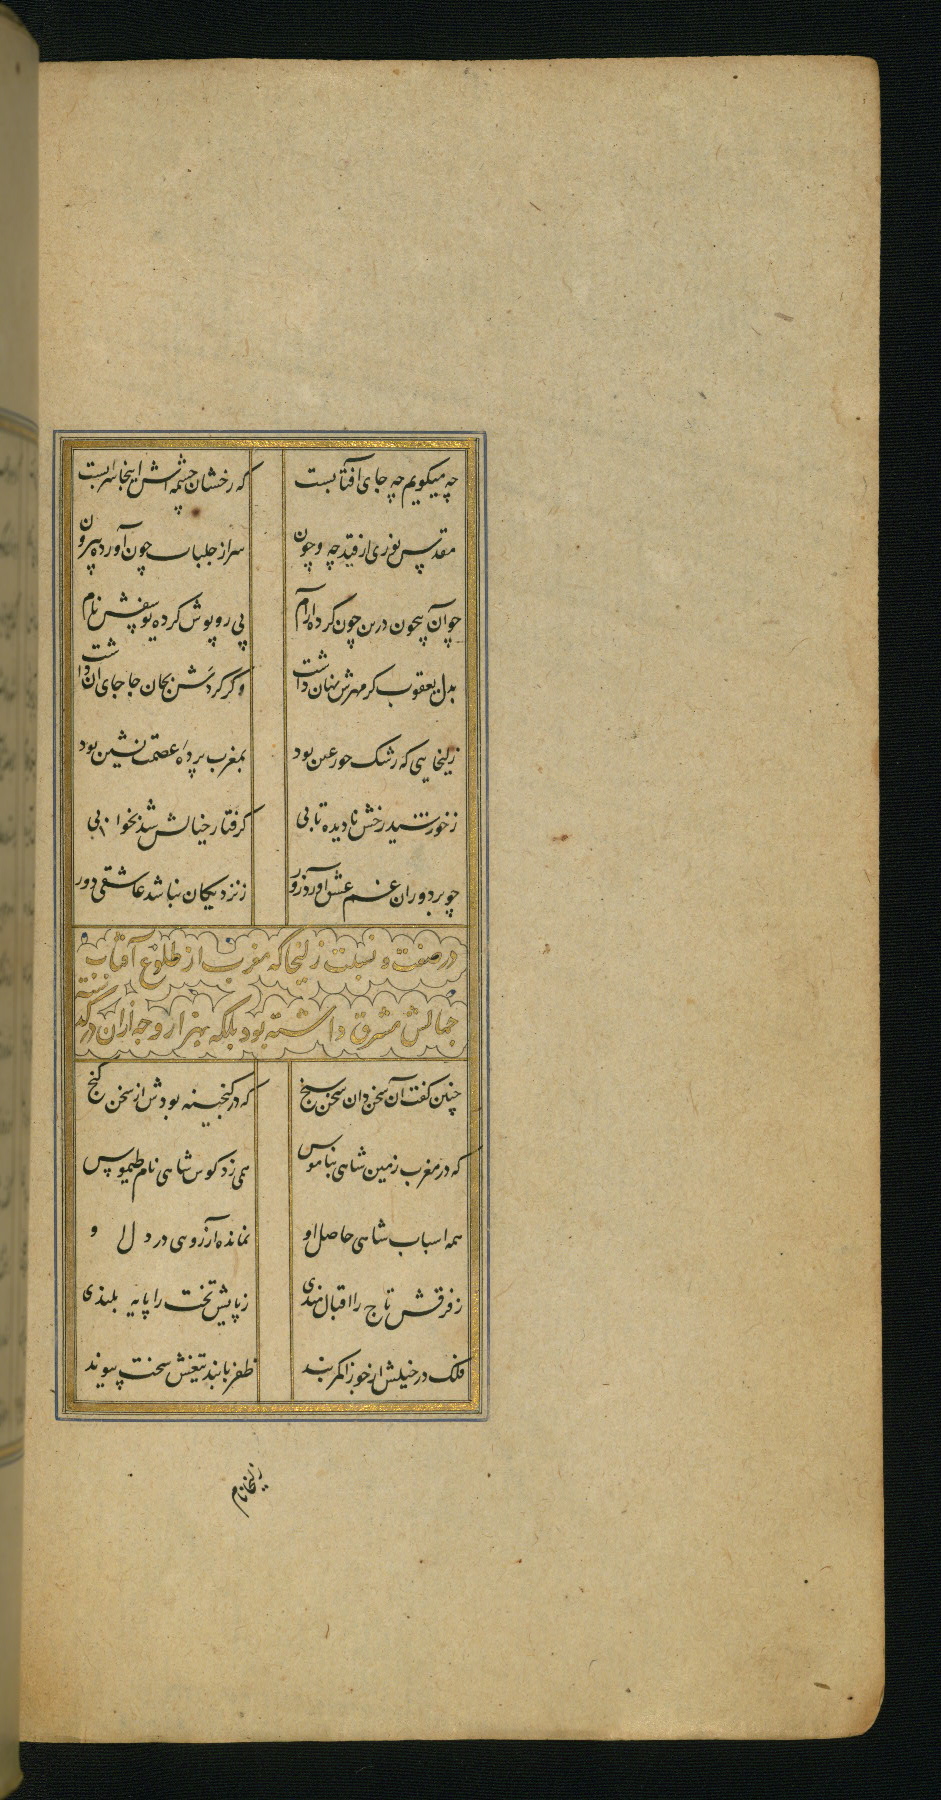 چه میکویم چه جای آفتابست که رخشان چشمه اش اینجا سرابست
مقدس نوری از قید چه و چون سر از جلباب چون آورده بیرون
چو آن بیچون درین چون کرده آرام پی روپوش کرده یوسفش نام
بدل یعقوب کر مهرش نهان داشت و کر کردش بجان جا جای آن داشت
زلیخایی که رشک حور عین بود بمغرب پردهٔ عصمت نشین بود
ز خورشید رخش نادیده تابی کرفتار خیالش شد بخوابی
چو بر دوران غم عشق آورد زور ز نزدیکان نباشد عاشقی دور
در صفت و نسبت زلیخا که مغرب از طلوع آفتاب
جمالش مشرق داشته بود بلکه بهزار و جه از آن درگذشته
چنین کفت آن سخن دان سخن سنج که در کنجینه بودش از سخن کنج
که در مغرب زمین شاهی بناموس همی زد کوس شاهی نام طیموس
همه اسباب شاهی حاصل او نمانده آرزوی در دل او
ز فرقش تاج را اقبال مندی ز پایش تخت را پایه بلندی
فلک در خیلش از جوزا کمر بند ظفر با بند تیغش سخت پیوند
زلیخا نام